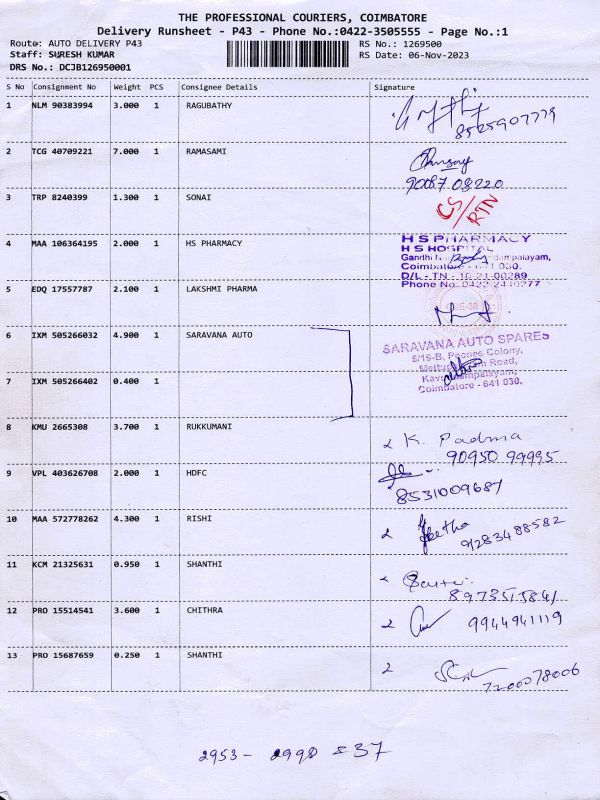 THE PROFESSIONAL COURIERS, COIMBATORE
Delivery Runsheet - P43 - Phone No.:0422-3505555 - Page No.:1
Route: AUTO DELIVERY P43 RS No.: 1269500
Staff: SURESH KUMAR RS Date: 06-Nov-2023
DRS No.: DCJB126950001
S No Consignment No Weight PCS Consignee Details Signature
1 NLM 90383994 3.000 1 RAGUBATHY
2 TCG 40709221 7.000 1 RAMASAMI
90087 08220
3 TRP 8240399 1.300 1 SONAI CS/RTN
4 MAA 106364195 2.000 1 HS PHARMACY H S PHARMACY
H S HOSPITAL
Coimbatore - 641 030.
D/L - TN - 16-21-00289
Phone No: 0422-2440277
5 EDQ 17557787 2.100 1 LAKSHMI PHARMA
6 IXM 505266032 4.900 1 SARAVANA AUTO SARAVANA AUTO SPARES
5/19-B, Peones Colony,
Road,
7 IXM 505266402 0.400 1
Coimbatore - 641 030.
8 KMU 2665308 3.700 1 RUKKUMANI K. Padma
90950 99995
9 VPL 403626708 2.000 1 HDFC
8531009687
10 MAA 572778262 4.300 1 RISHI Geetha
9283488582
11 KCM 21325631 0.950 1 SHANTHI
12 PRO 15514541 3.600 1 CHITHRA 9944941119
13 PRO 15687659 0.250 1 SHANTHI
7200078006
2953 - 2990 = 37